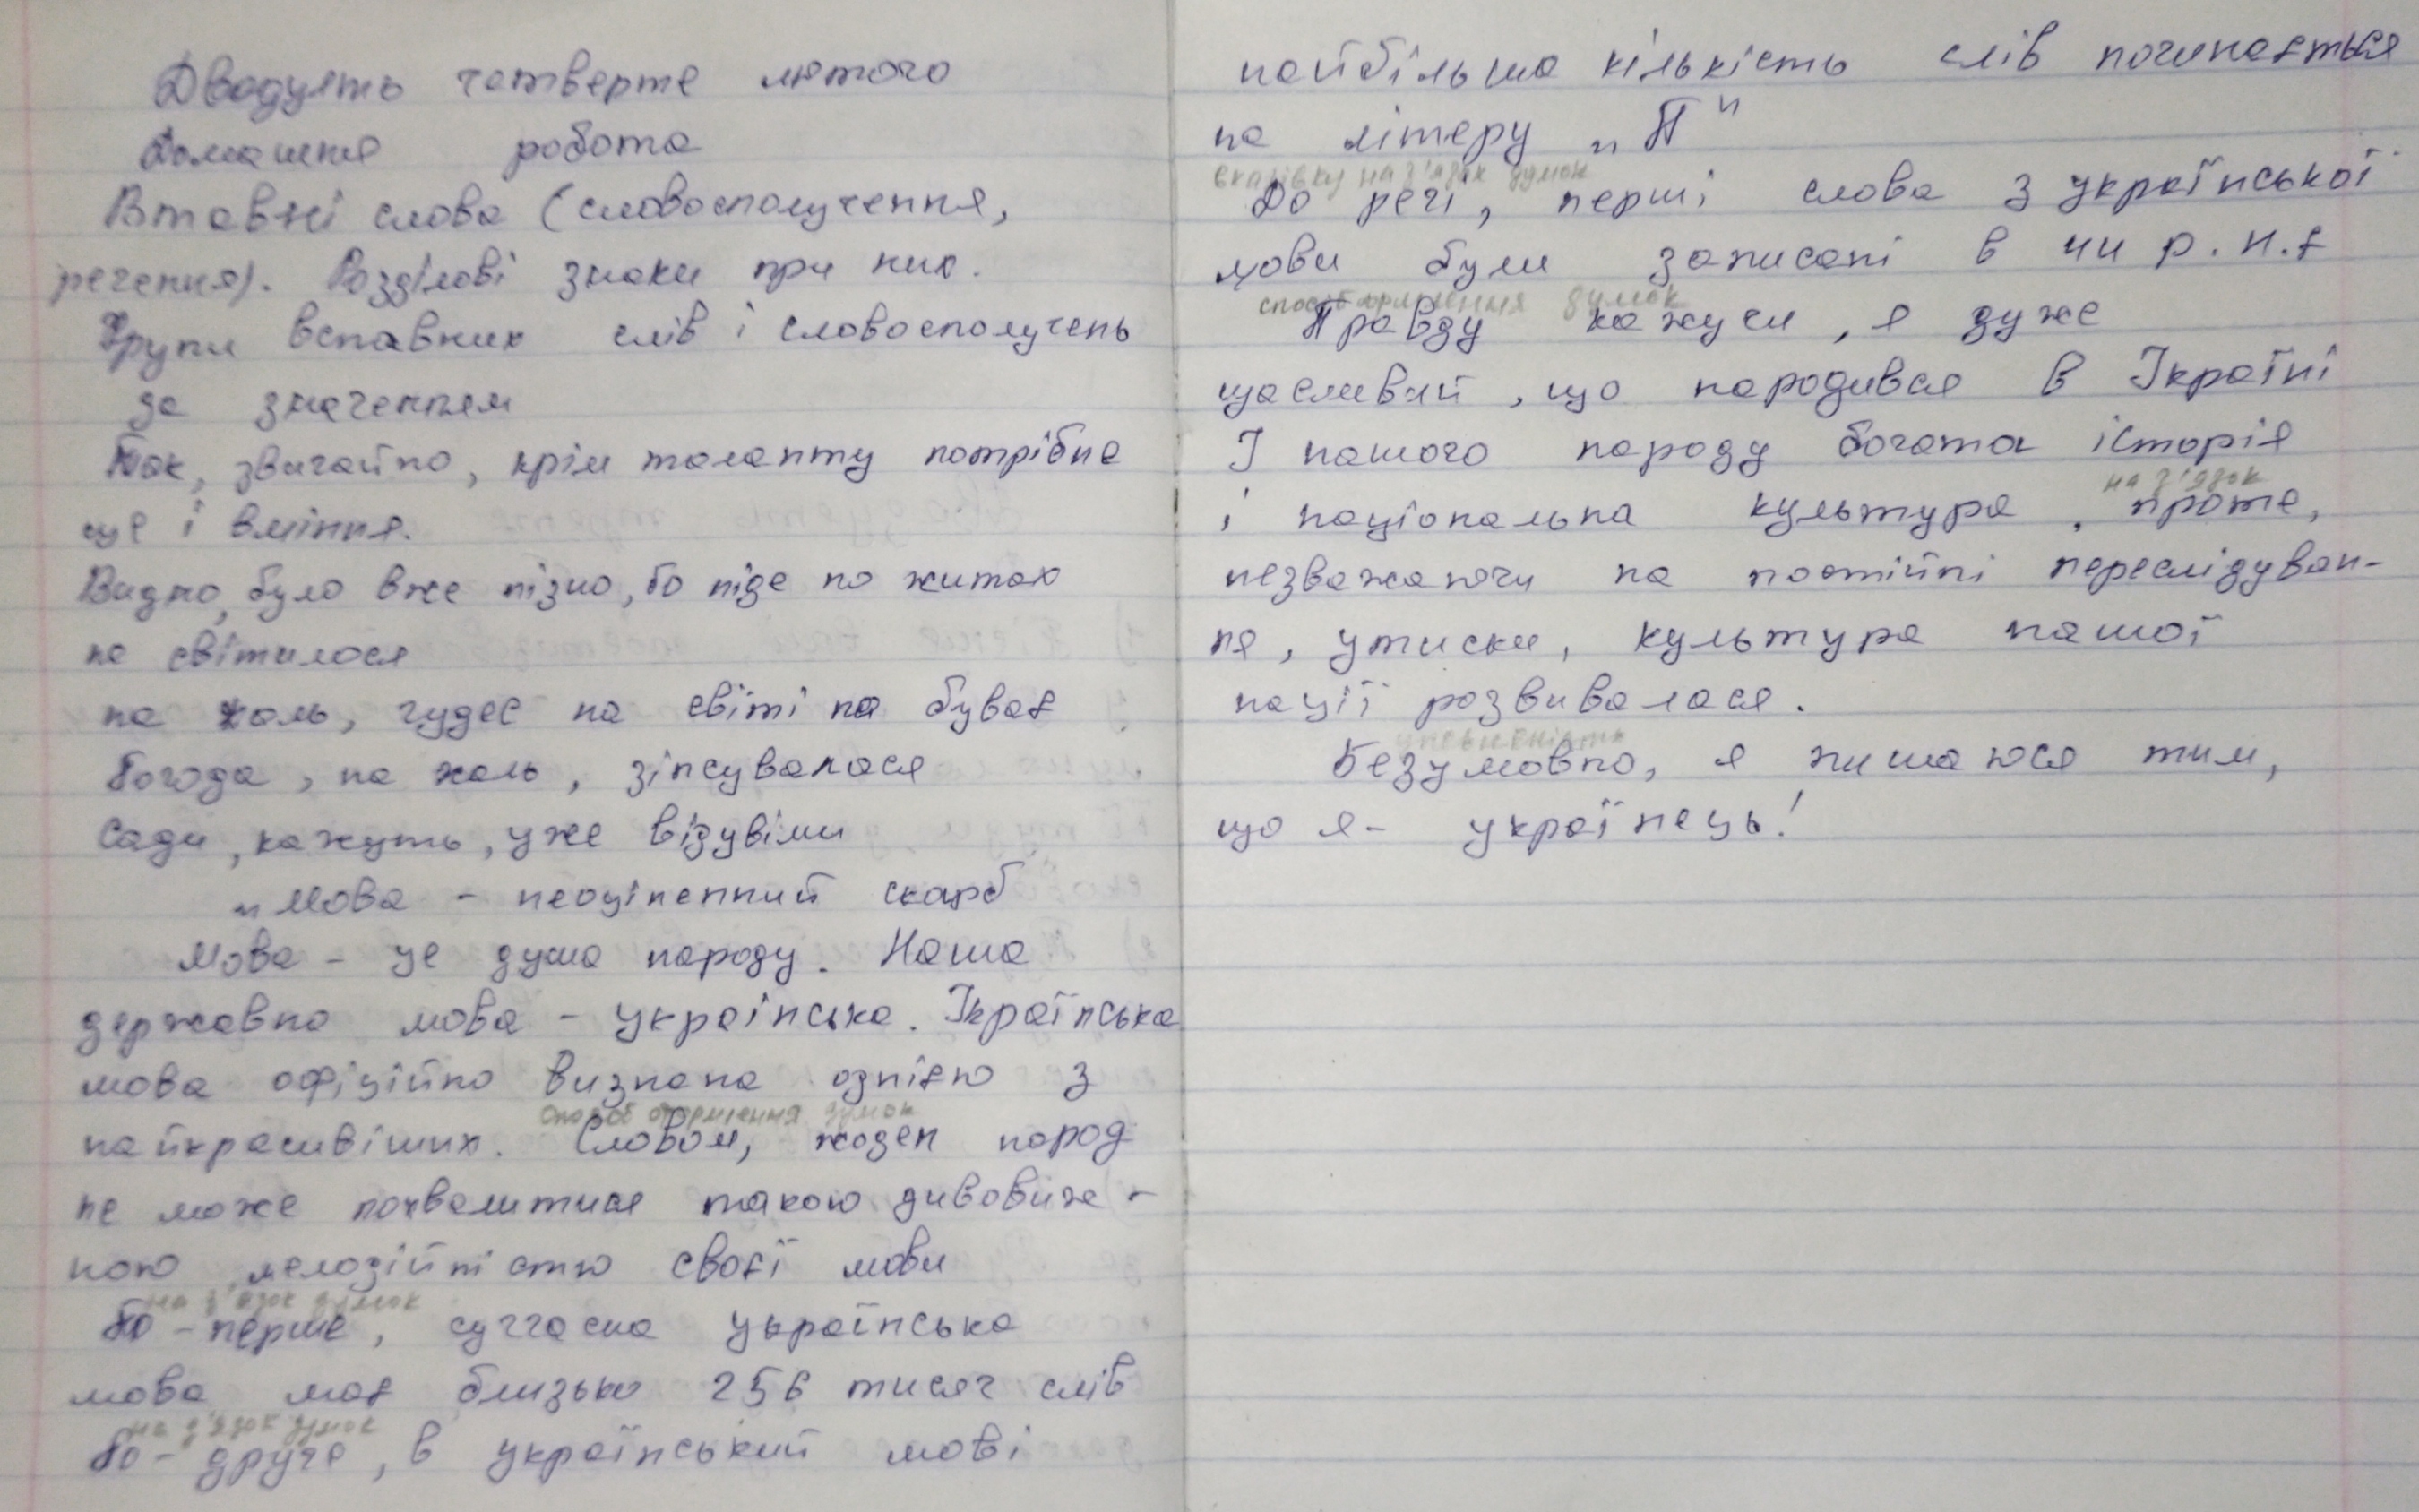 Двадцять четверте лютого
Домашня робота
Вставні слова (словосполучення,
речення). Розділові знаки при них.
Групи вставних слів і словосполучень
за значенням
Так, звичайно, крім таланту потрібне
ще і вміння.
Видно, було вже пізно, бо ніде по житах
не світилося
на жаль, чудес на світі на буває
Погода, на жаль, зіпсувалася
Сади, кажуть, уже відувіми
„Мова - неоціненний скарб
Мова - це душа народу. Наша
державна мова - українська. Українська
мова офіційно визнана однією з
спосіб оформлення думок
найкрасивіших. Словом, жоден народ
не може похвалитися такою дивовиж-
ною мелодійністю своєї мови
на з'язок думок
по-перше, суччасна українська
мова має близько 256 тисяч слів
на з'язок думок
по-друге, в український мові
найбільша кількість слів починається
на літеру „П"
вказівку на з'язок думок
До речі, перші слова з української
мови були записані в чи р. н.є
спосіб оформлення думок
Правду кажучи, я дуже
щасливий, що народився в Україні
У нашого народу богата історія
на з'язок
і національна культура, проте,
незважаючи на постійні переслідуван-
ня, утиски, культура нашої
нації розвивалася.
упевненість
Безумовно, я пишаюся тим,
що я - українець!